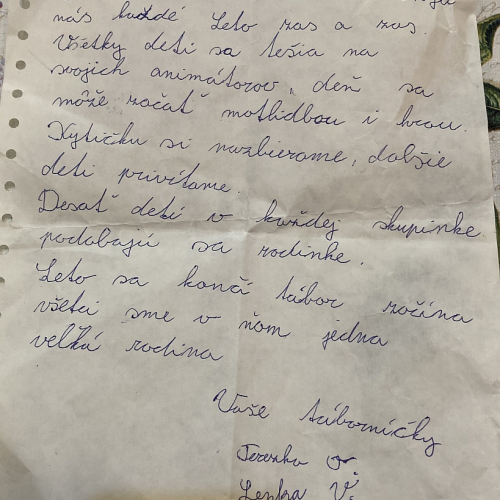 nás každé Leto zas a zas.
Všetky deti sa tešia na
svojich animátorov, deň sa
môže začať motlidbou i hrou.
Kytičku si nazbierame, dalšie
deti privítame.
Desať detí v každej skupinke
podobajú sa rodinke.
Leto sa končí tábor začína
všetci sme v ňom jedna
veľká rodina
Vaše táborníčky
Terezka O.
Lenka V.